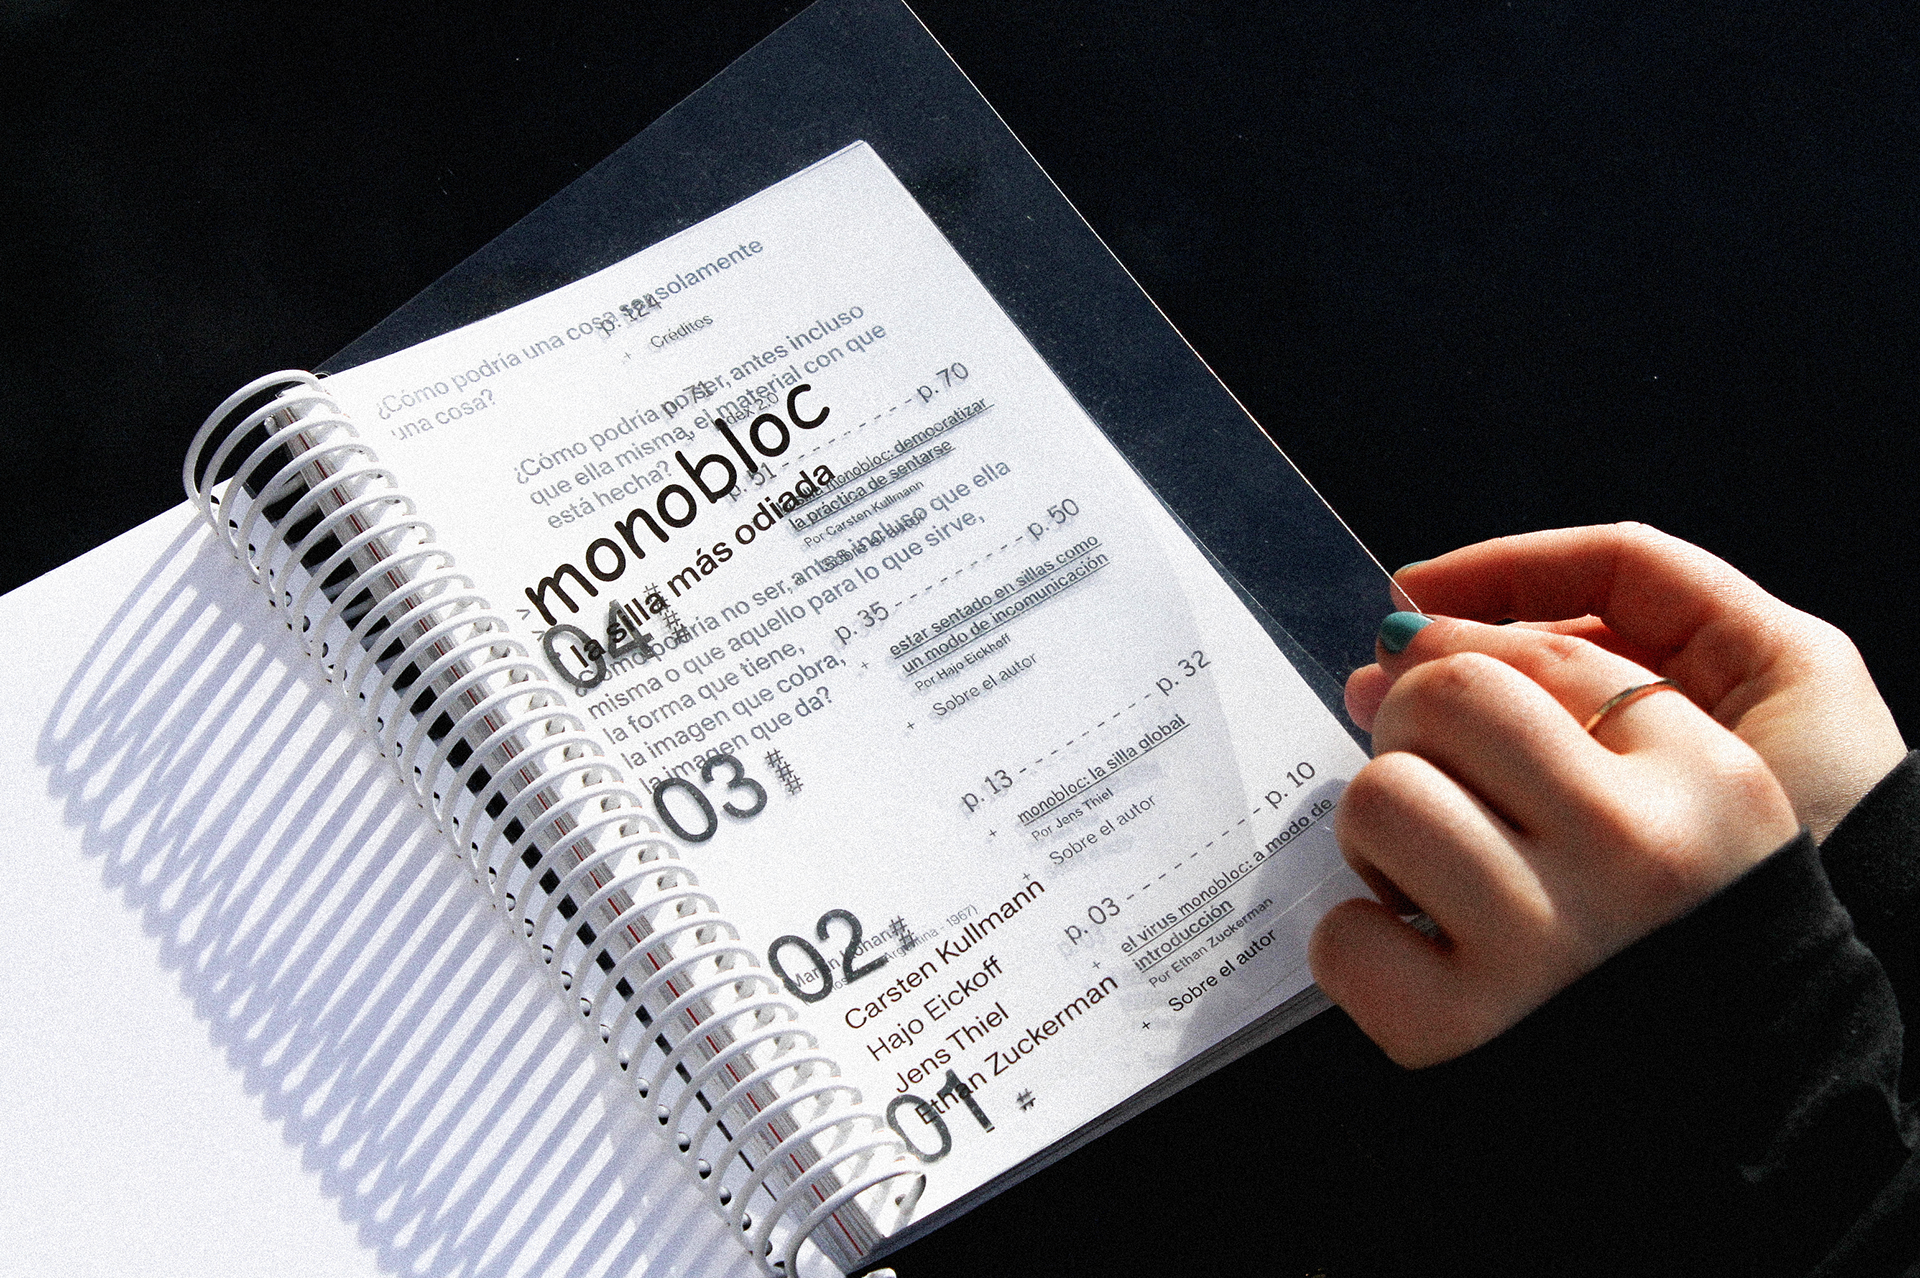 ¿Cómo podría una cosa ser solamente
una cosa?
p. 124
+ Créditos
¿Cómo podría no ser, antes incluso
que ella misma, el material con que
está hecha?
p. 71
Index 2.0
> monobloc
> la silla más odiada
p. 51 - - - - - - - - - - p. 70
monobloc: democratizar
la práctica de sentarse
Por Carsten Kullmann
Sobre el autor
04
#
#
#
¿Cómo podría no ser, antes incluso que ella
misma o que aquello para lo que sirve,
la forma que tiene,
la imagen que cobra,
la imagen que da?
p. 35 - - - - - - - - - - p. 50
+ estar sentado en sillas como
un modo de incomunicación
Por Hajo Eickhoff
+ Sobre el autor
03
#
#
#
p. 13 - - - - - - - - - - p. 32
+ monobloc: la silla global
Por Jens Thiel
+ Sobre el autor
02
#
#
Argentina - 1967)
p. 03 - - - - - - - - - - p. 10
+ el virus monobloc: a modo de
introducción
Por Ethan Zuckerman
+ Sobre el autor
Carsten Kullmann
Hajo Eickoff
Jens Thiel
Ethan Zuckerman
01
#